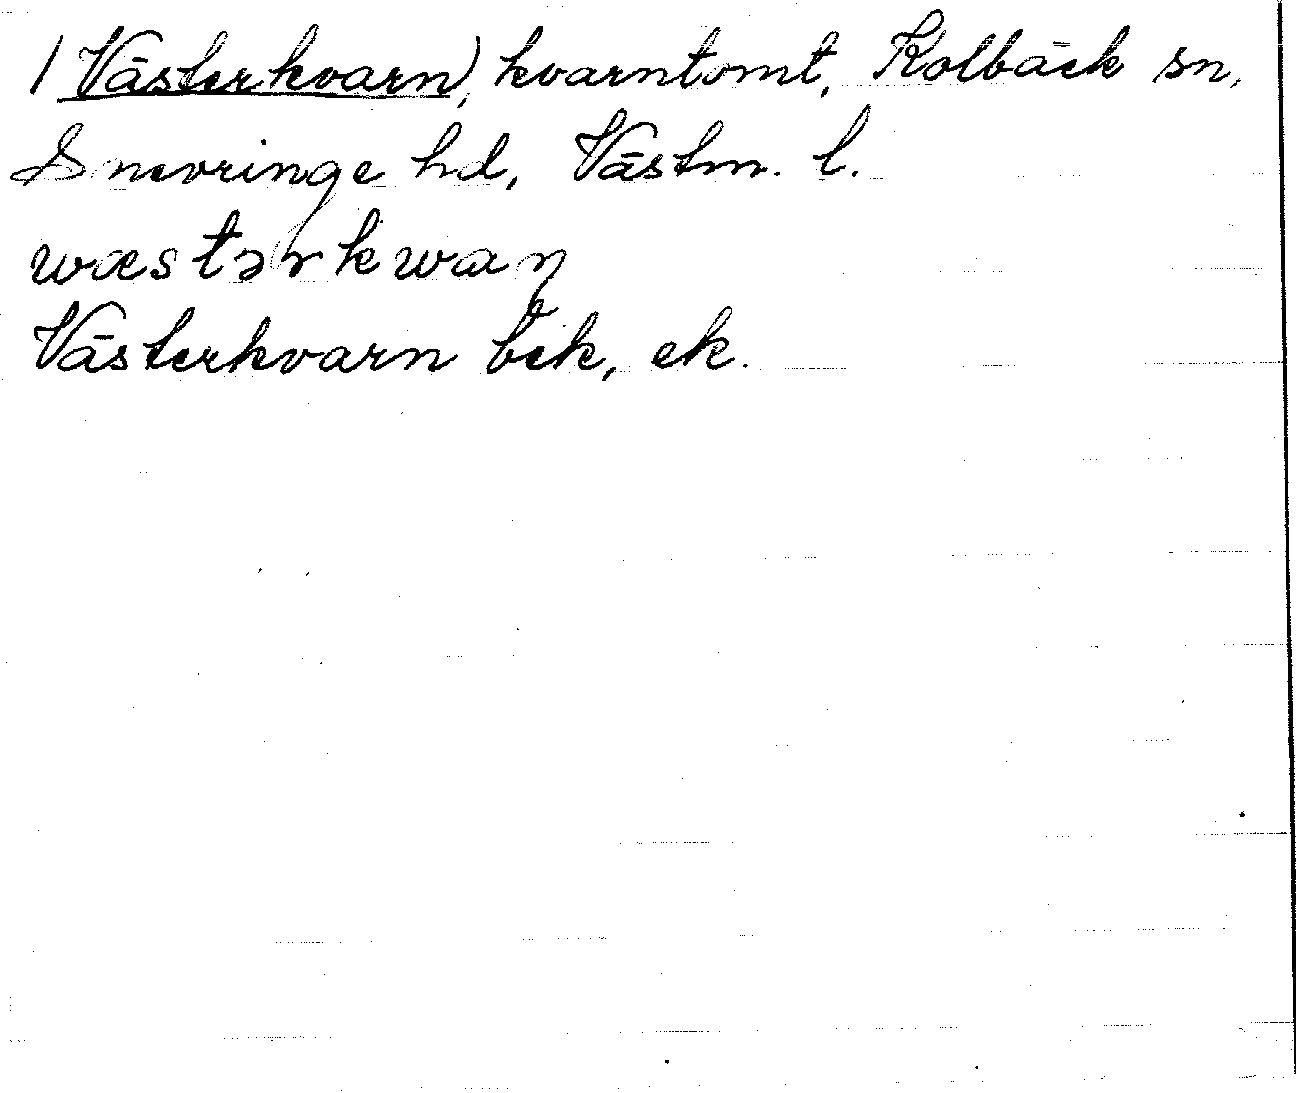 (Västerkvarn), kvarntomt, Kolbäck sn,
Snevringe hd, Västm. l.
wæstərkwaɳ
Västerkvarn bek, ek.